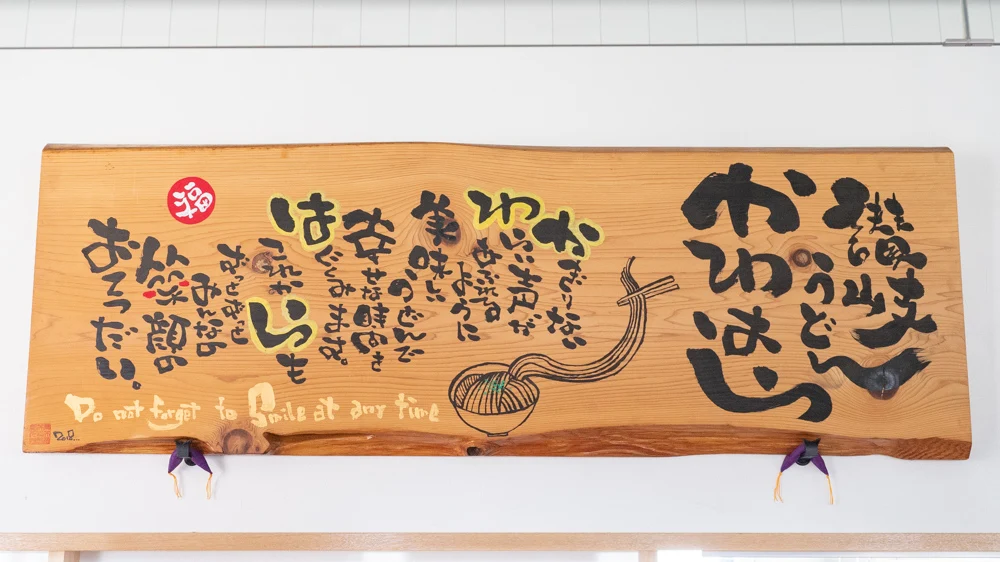 うどん
かわはら
かぎりない
わらい声が
あふれる
ように
美味しい
うどんで
幸せな時間を
はぐくみます。
これからも
ずっとずっと
みんなの
笑顔の
おてつだい。
福
Do not forget to Smile at any time